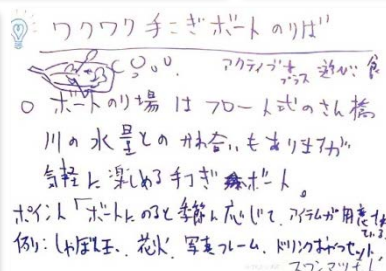 ワクワク手こぎボートのりば
アクティブ+プラス 遊び 食
○ ボートのり場はフロート式のさん橋
川の水量とのかね合いもありますが
気軽に楽しめる手こぎボート。
ポイント「ボートにのると季節に応じて、アイテムが用意されている」
例り:しゃぼん玉、花火、写真フレーム、ドリンクおやつセット、
スワンマッチ!